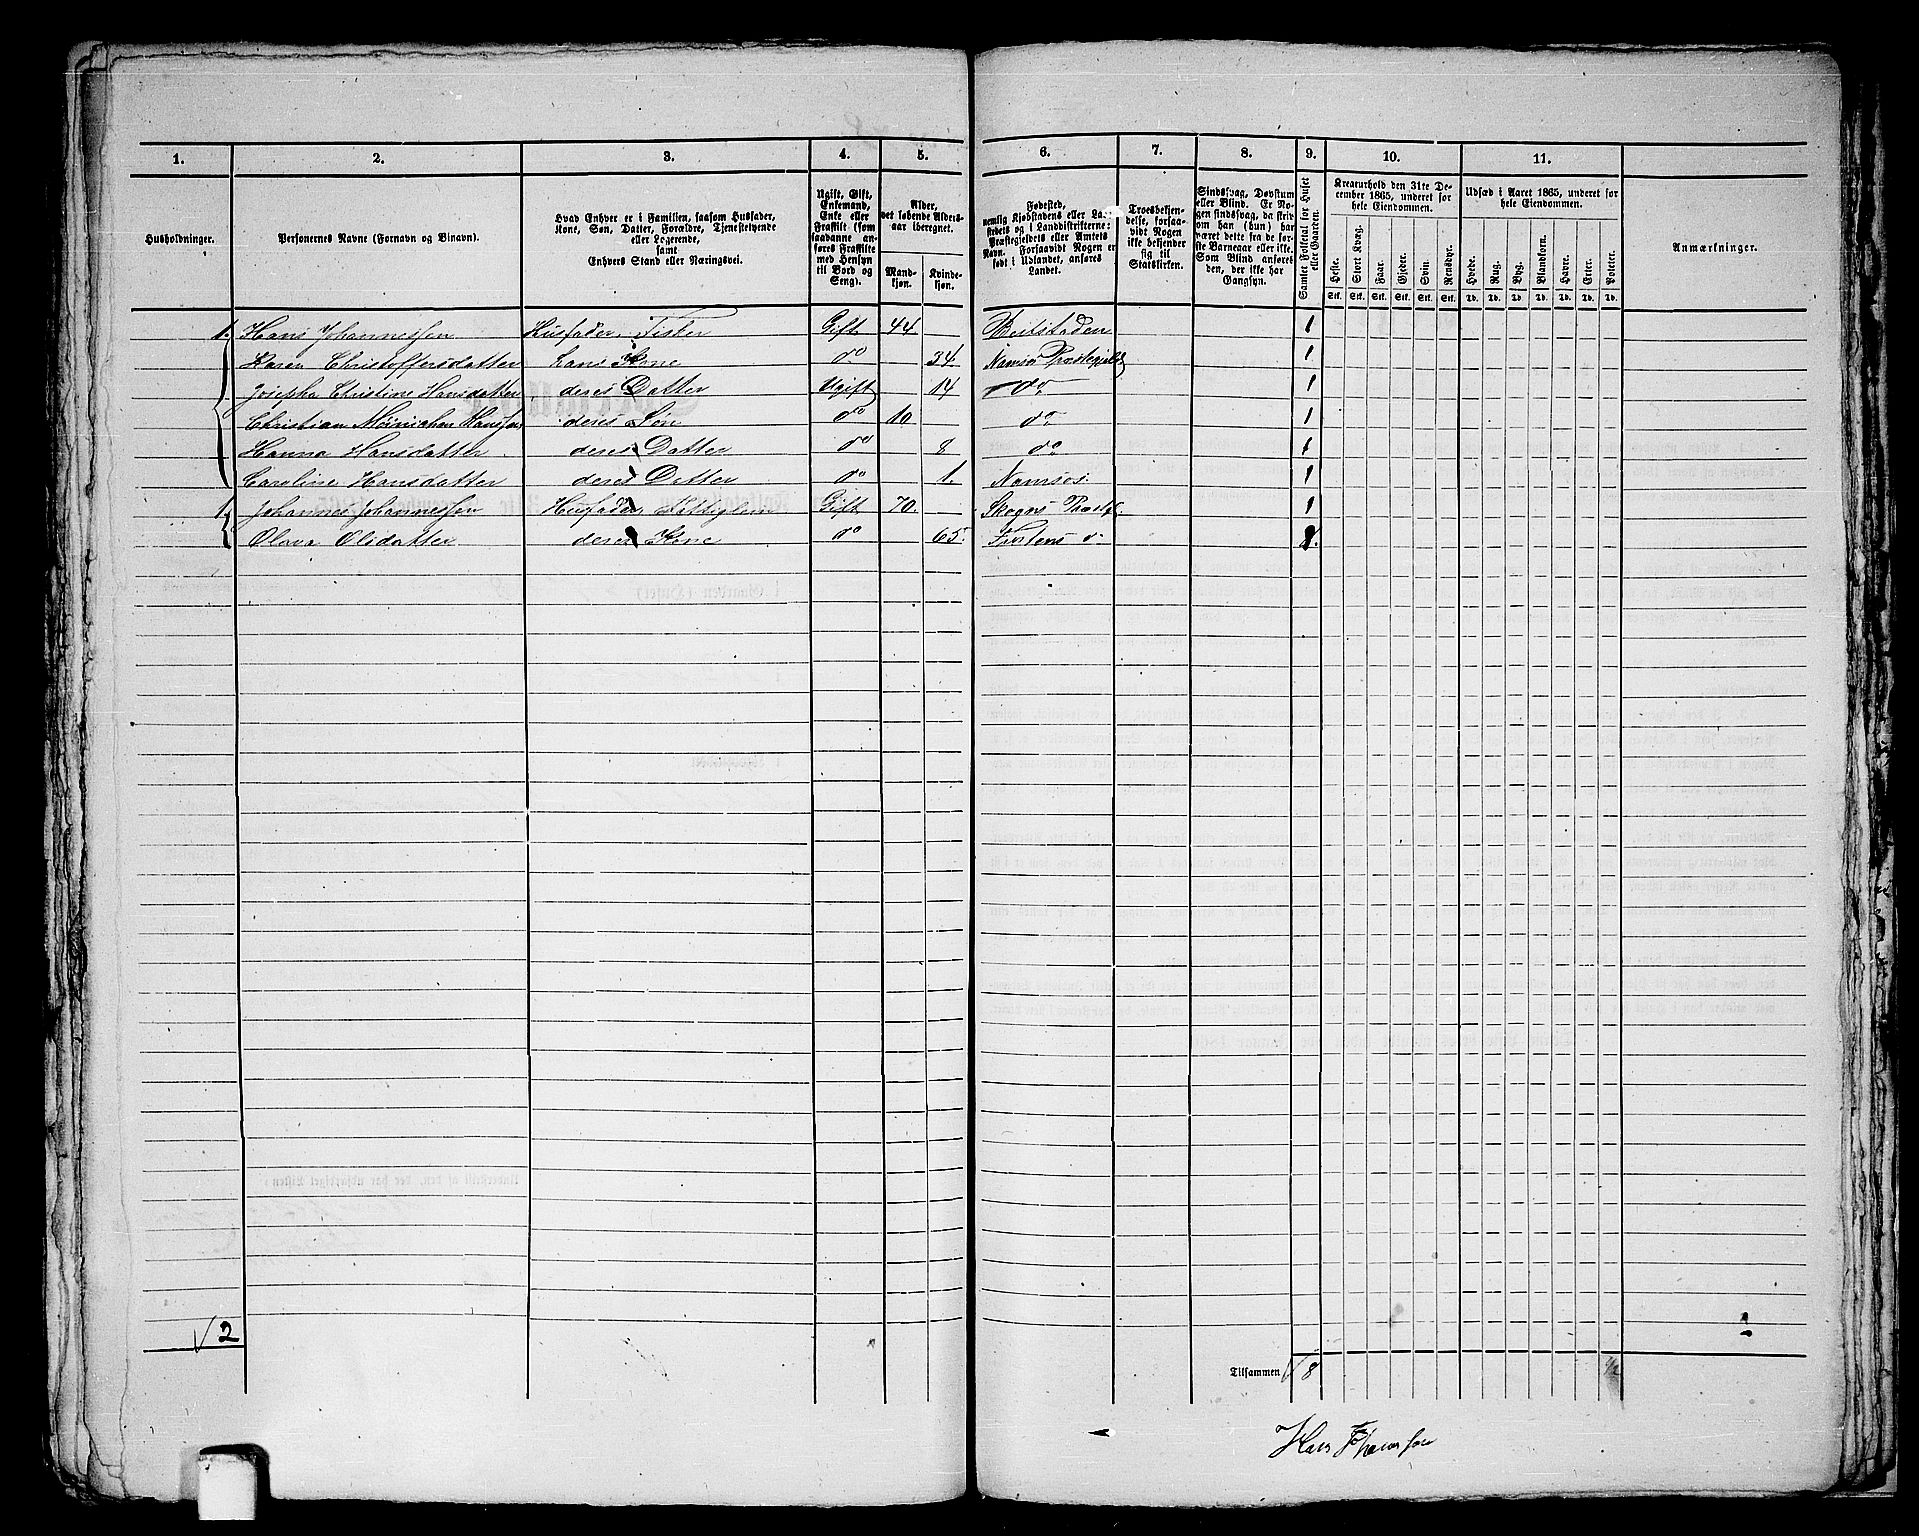 1. 2. 3. 4. 5. 6. 7. 8. 9. 10. 11.
Husholdninger.
Personernes Navne (Fornavn og Binavn).
Hvad Enhver er i Familien, saasom Husfader,
Kone, Søn, Datter, Forældre, Tjenestetyende
eller Logerende,
samt
Enhvers Stand eller Næringsvei.
Ugift, Gift,
Enkemand,
Enke eller
Fraskilt (som
saadanne an-
føres Fraskilte
med Hensyn
til Bord og
Seng).
Alder,
det løbende Alders-
aar iberegnet.
Mand-
kjøn.
Kvinde-
kjøn.
Fødested,
nemlig Kjøbstadens eller La-
destedets og i Landdistrikterne:
Præstegjeldets eller Amtets
Navn. Forsaavidt Nogen er
født i Udlandet, anføres
Landet.
Troesbekjen-
delse, forsaa-
vidt Nogen
ikke bekjender
sig til
Statskirken.
Sindssvag, Døvstum
eller Blind. Er No-
gen sindssvag, da skriv
om han (hun) har
været dette fra de før-
ste Barneaar eller ikke.
Som Blind anføres
den, der ikke har
Gangsyn.
Samlet Folketal for Huset
eller Gaarden.
Kreaturhold den 31te De-
cember 1865, underet for
hele Eiendommen.
Heste. Stort Kvæg. Faar. Gjeder. Svin. Rensdyr.
Stk. Stk. Stk. Stk. Stk. Stk.
Udsæd i Aaret 1865, underet for
hele Eiendommen.
Hvede. Rug. Byg. Blandkorn. Havre. Erter. Poteter.
Td. Td. Td. Td. Td. Td. Td.
Anmærkninger.
1. Hans Johannessen Husfader, Fisker Gift 44 Beitstaden 1
Karen Christoffersdatter hans Kone do 34 Namsos Præstegjeld 1
Josepha Christine Hansdatter deres Datter Ugift 14 do 1
Christian Meinichen Hanssen deres Søn do 10. do 1
Hanna Hansdatter deres Datter do 8 do 1
Caroline Hansdatter deres Datter do 1. Namsos. 1
1 Johannes Johannessen Husfader Gift 70. Skogns Præstg. 1
Olava Olsdatter deres Kone do 65. Frostens do 1.
√2
Tilsammen √8
Hans Johannessen